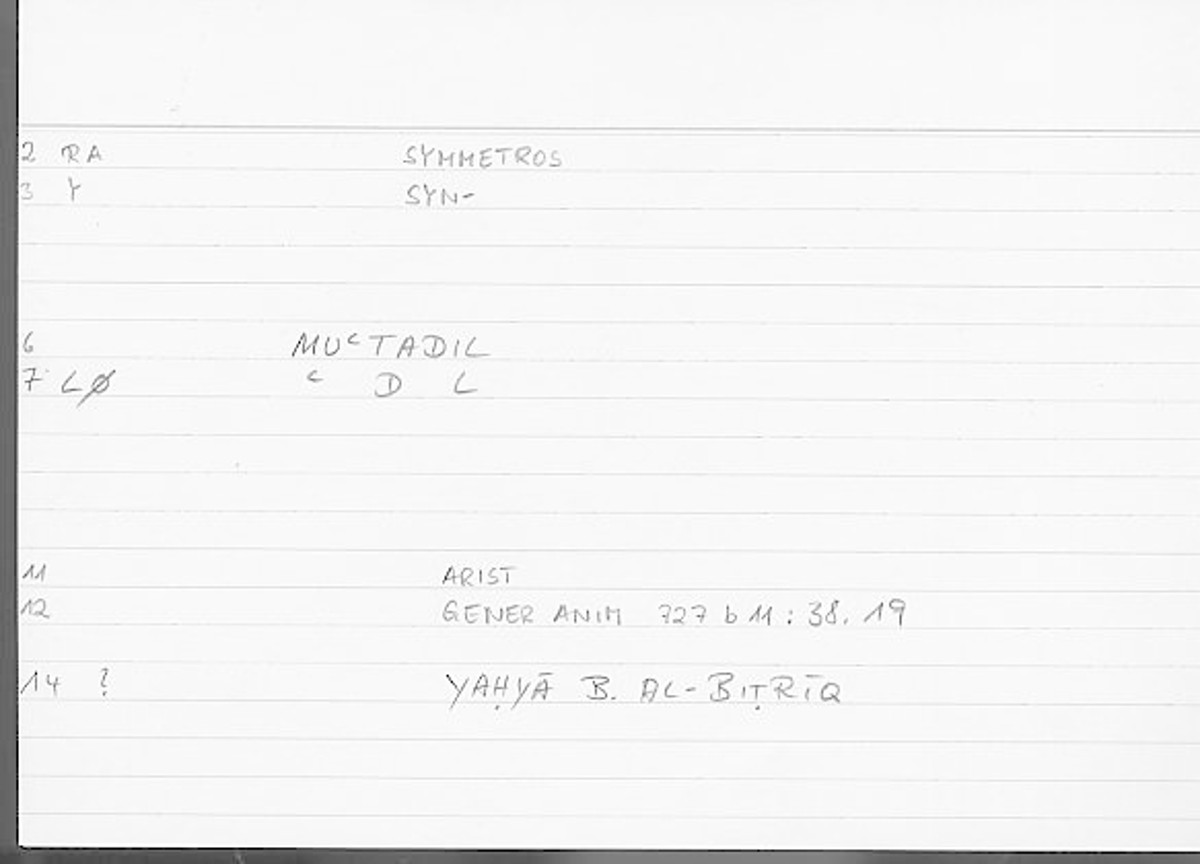 2 RA SYMMETROS
3 Y SYN-
6 MUʿTADIL
7 LØ ʿ D L
11 ARIST
12 GENER ANIM 727 b 11 : 38. 19
14 ? YAḤYĀ B. AL-BIṬRĪQ